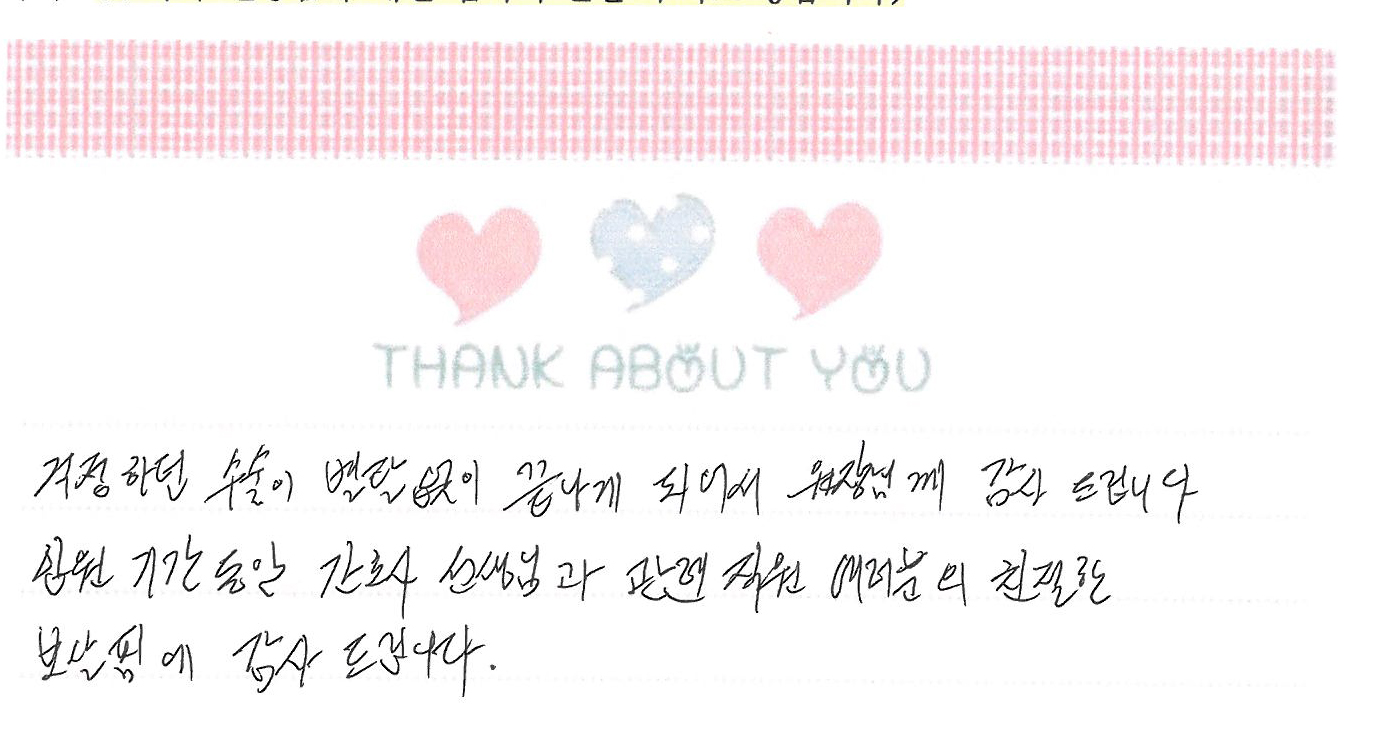 THANK ABOUT YOU
걱정하던 수술이 별탈없이 끝나게 되어서 원장님께 감사 드립니다
입원 기간동안 간호사 선생님과 관련 직원 여러분의 친절한
보살핌에 감사 드립니다.